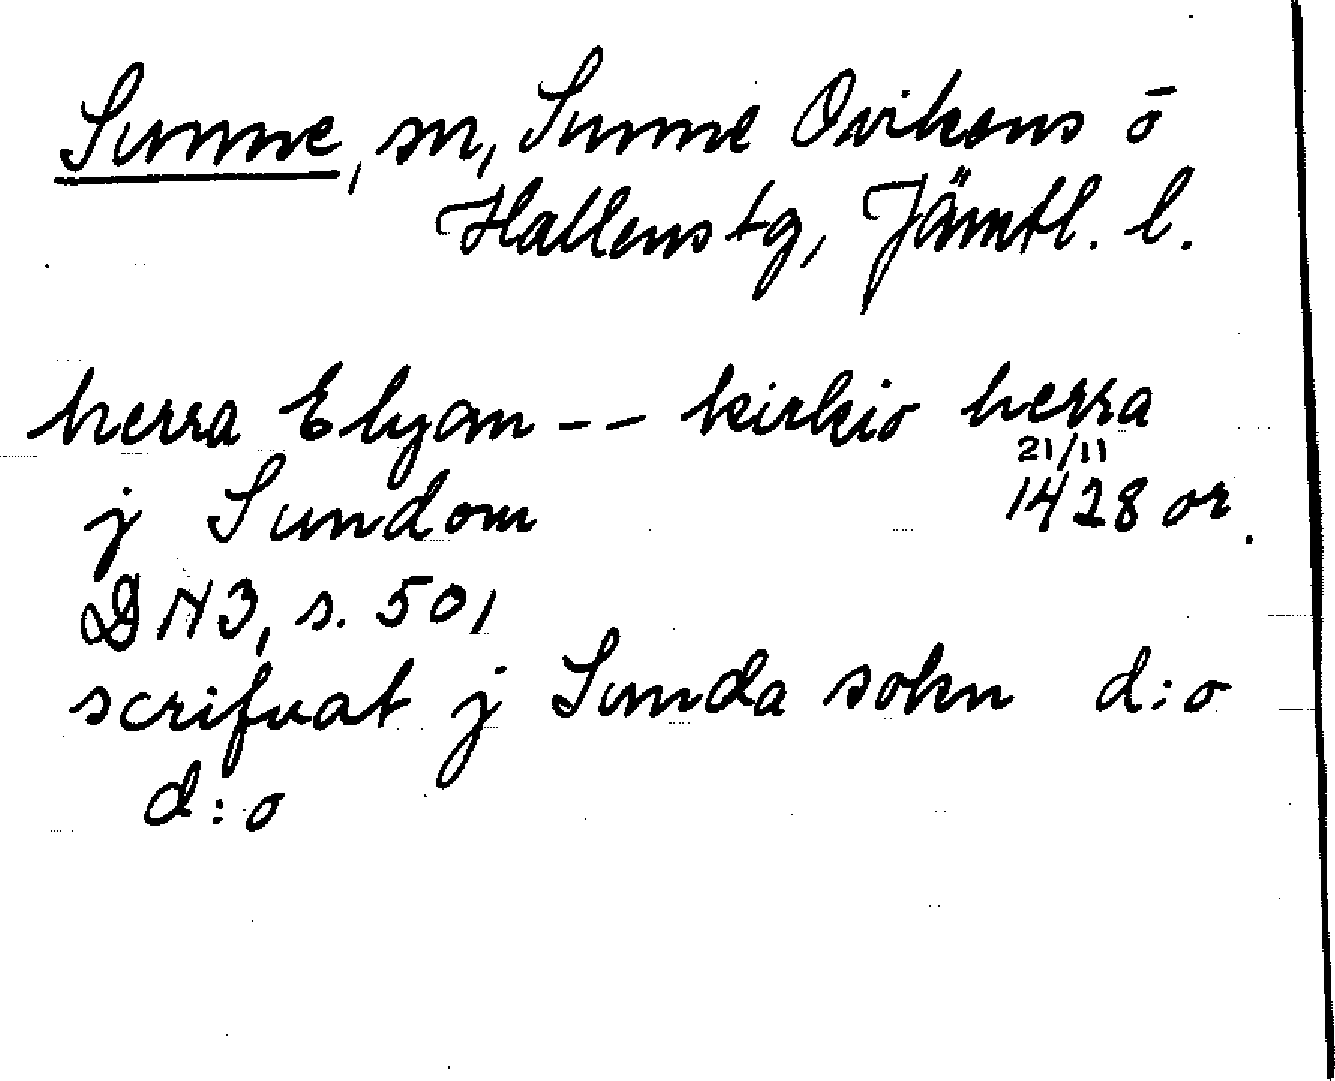 Sunne, sn, Sunne Ovikens ō
Hallens tg, Jämtl. l.
herra Elyan -- kirkio herra
j Sundom 21/11 1428 or.
DN 3, s. 501
scrifuat j Sunda sokn d:o
d:o